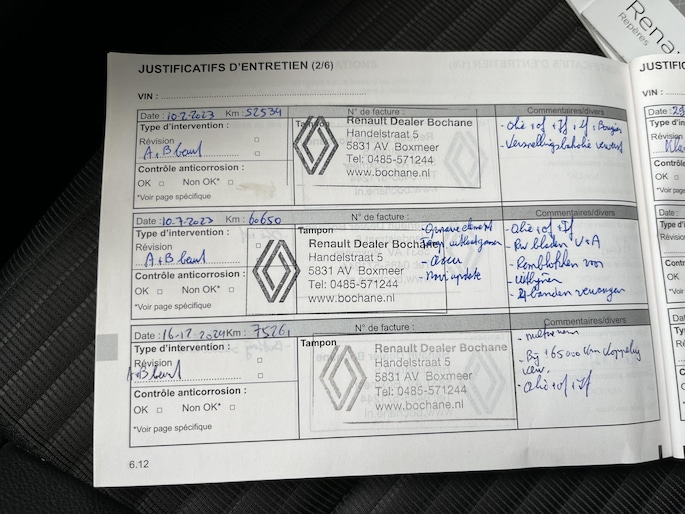 Rena
Repères
JUSTIFICATIFS D'ENTRETIEN (2/6)
JUSTIFIC
VIN :
VIN :
Date : 10-2-2023 Km : 52534
N° de facture :
Commentaires/divers
Type d'intervention :
Révision
A+B beurt
Contrôle anticorrosion :
OK Non OK* :
*Voir page spécifique
Tampon
Renault Dealer Bochane
Handelstraat 5
5831 AV Boxmeer
Tel: 0485-571244
www.bochane.nl
- Olie + of + If + lf + Bougies
- Versnellingsbakolie ververst
Date : 10-7-2023 Km : 60650
N° de facture :
Commentaires/divers
Type d'intervention :
Révision
A+B beurt
Contrôle anticorrosion :
OK Non OK* :
*Voir page spécifique
Tampon
Renault Dealer Bochane
Handelstraat 5
5831 AV Boxmeer
Tel: 0485-571244
www.bochane.nl
- accu
- Navi update
- Olie + of + If
- Rw bladen V+A
- Remblokken voor
- uitlijnen
- banden vervangen
Date : 16-12-2024 Km : 7526
N° de facture :
Commentaires/divers
Type d'intervention :
Révision
A+B beurt
Contrôle anticorrosion :
OK Non OK* :
*Voir page spécifique
Tampon
Renault Dealer Bochane
Handelstraat 5
5831 AV Boxmeer
Tel: 0485-571244
www.bochane.nl
- Bij ±65000 km koppeling
verv.
- Olie + of + If
6.12